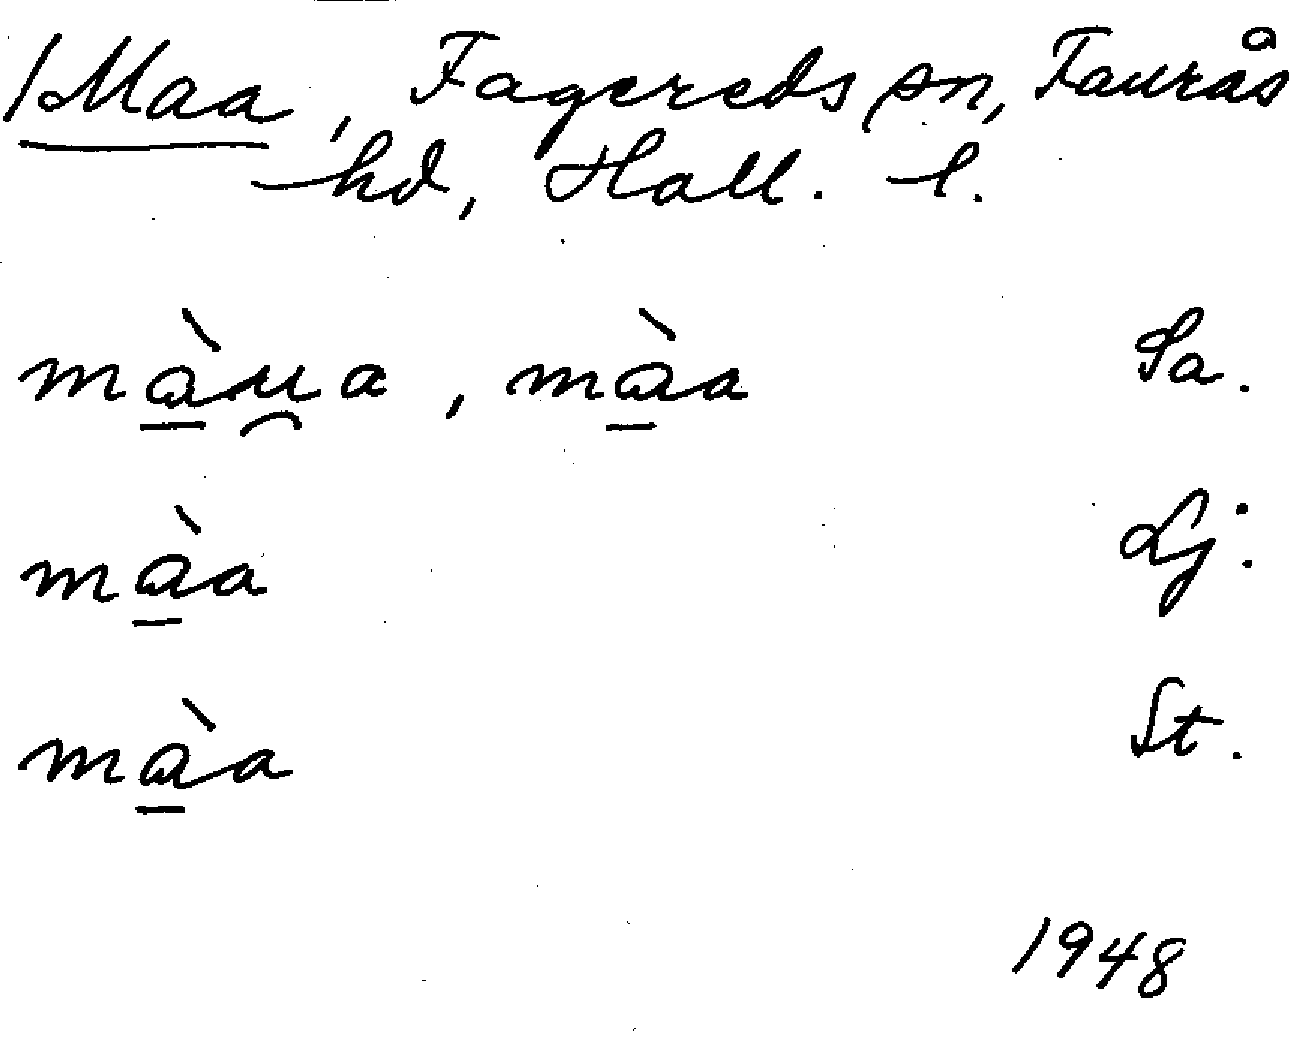 /Maa, Fagereds sn, Faurås
hd, Hall. l.
mà̱u̯a, mà̱a Sa.
mà̱a Lj.
mà̱a St.
1948